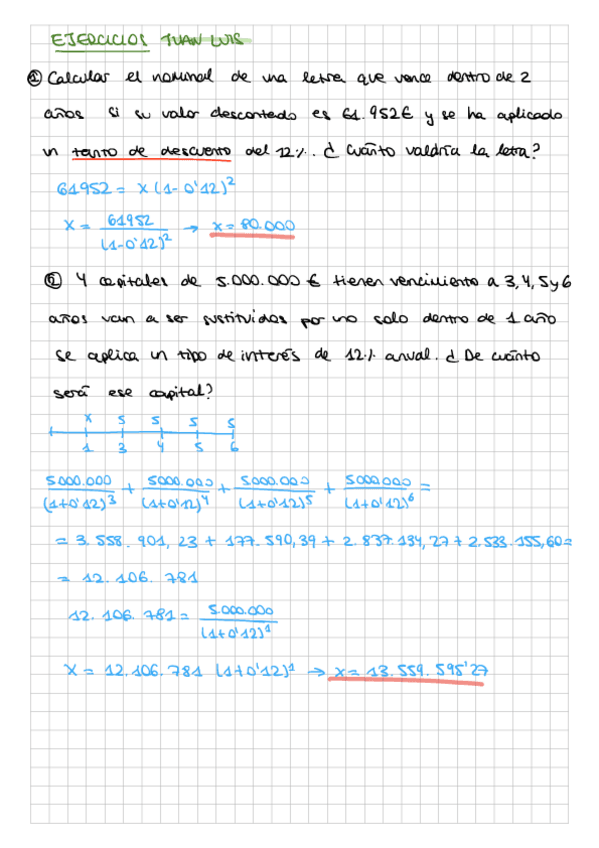 EJERCICIOS JUAN LUIS
① Calcular el nominal de una letra que vence dentro de 2
años si su valor descontado es 61.952€ y se ha aplicado
un tanto de descuento del 12%. ¿Cuánto valdría la letra?
61952 = x (1-0'12)²
x = 61952 / (1-0'12)² → x = 80.000
② 4 capitales de 5.000.000 € tienen vencimiento a 3, 4, 5 y 6
años van a ser sustituidos por uno solo dentro de 1 año
se aplica un tipo de interés de 12% anual. ¿De cuánto
será ese capital?
x 5 5 5 5
1 3 4 5 6
5000.000 / (1+0'12)³ + 5000.000 / (1+0'12)⁴ + 5000.000 / (1+0'12)⁵ + 5000.000 / (1+0'12)⁶ =
= 3.558.901,23 + 177.590,39 + 2.837.134,27 + 2.533.155,60 =
= 12.106.781
12.106.781 = 5.000.000 / (1+0'12)¹
X = 12.106.781 (1+0'12)¹ → x = 13.559.595'27